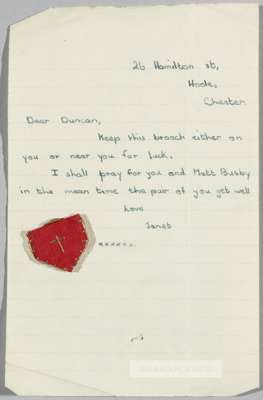 26 Hamilton st,
Hoole,
Chester
Dear Duncan,
Keep this broach either on
you or near you for luck.
I shall pray for you and Matt Busby
in the mean time the pair of you get well
Love
Janet
xxxxxx